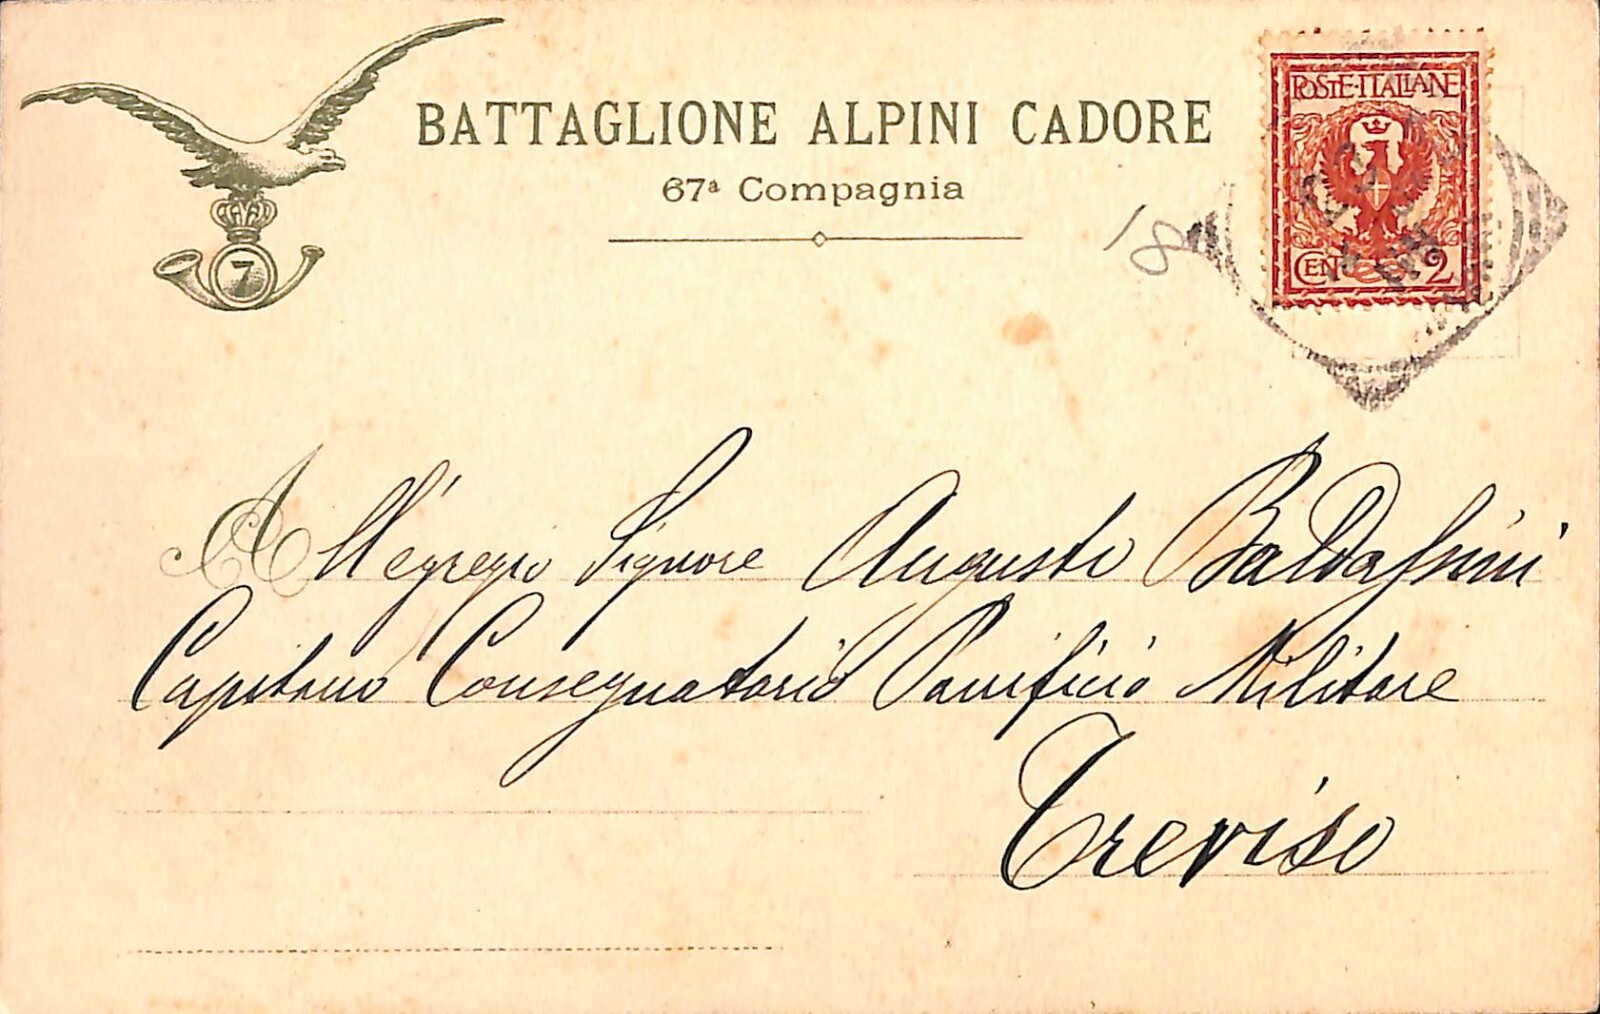 BATTAGLIONE ALPINI CADORE
67ª Compagnia
7
POSTE·ITALIANE
CENT 2
18
All'egregio Signore Augusto Baldassini
Capitano Consegnatario Panificio Militare
Treviso